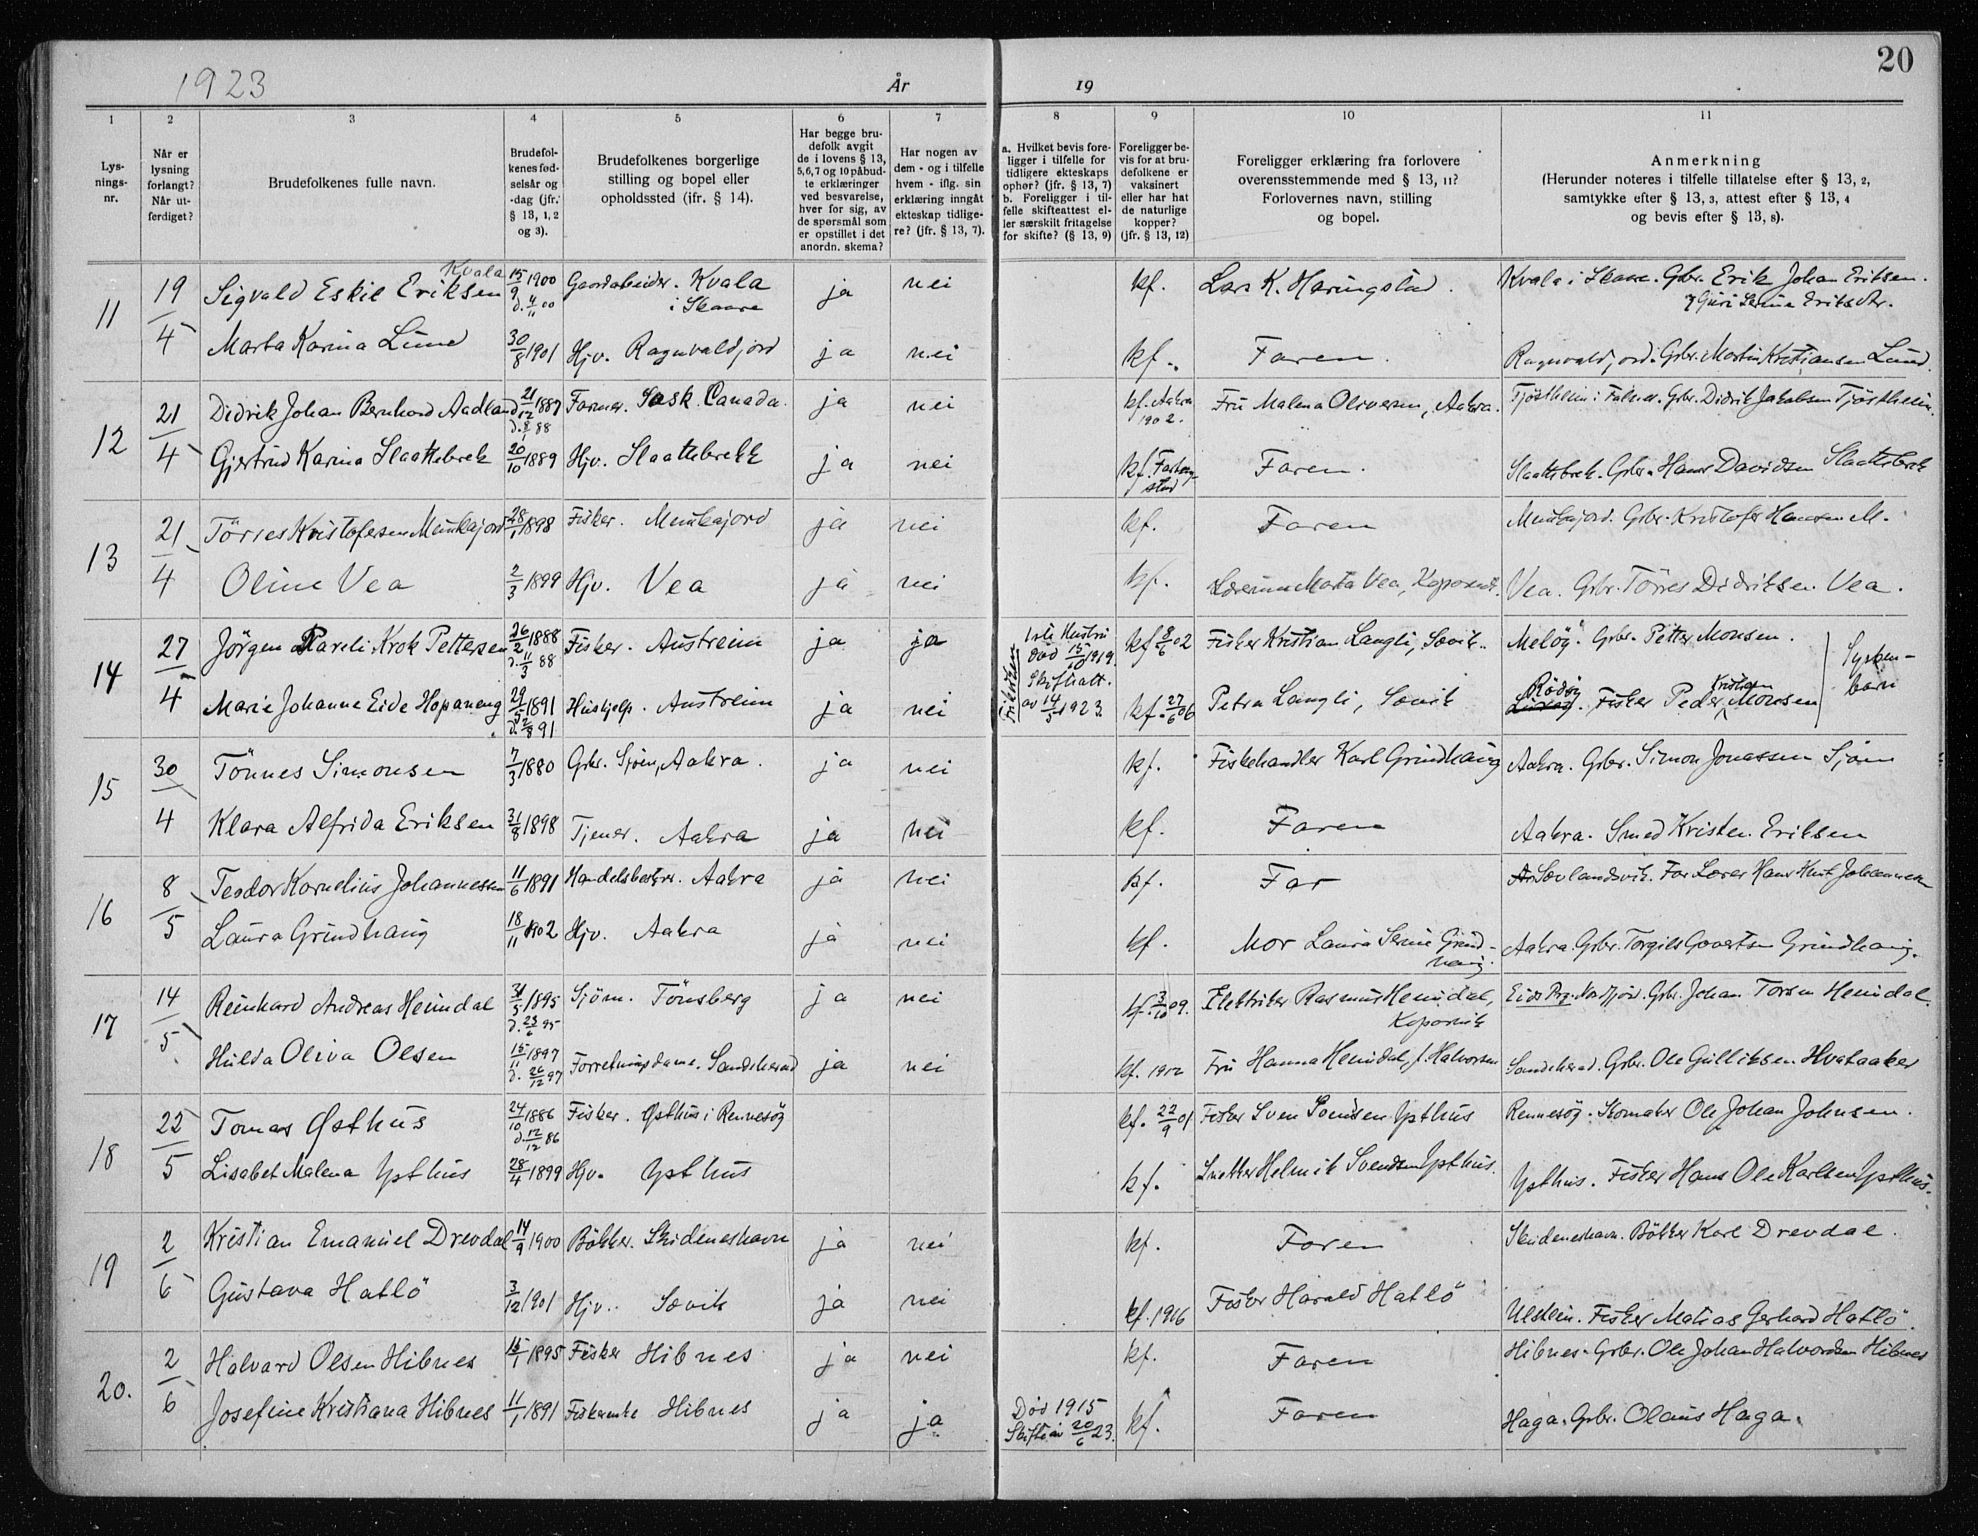 20
1923
År
19
1
2
3
4
5
6
7
8
9
10
11
Lys-
nings-
nr.
Når er
lysning
forlangt?
Når ut-
ferdiget?
Brudefolkenes fulle navn.
Brudefol-
kenes fød-
selsår og
-dag (jfr.
§ 13, 1, 2
og 3).
Brudefolkenes borgerlige
stilling og bopel eller
opholdssted (ifr. § 14).
Har begge bru-
defolk avgit
de i lovens § 13,
5,6,7 og 10 påbud-
te erklæringer
ved besvarelse,
hver for sig, av
de spørsmål som
er opstillet i det
anordn. skema?
Har nogen av
dem - og i tilfelle
hvem - iflg. sin
erklæring inngåt
ekteskap tidlige-
re? (jfr. § 13, 7).
a. Hvilket bevis fore-
ligger i tilfelle for
tidligere ekteskaps
ophør? (jfr. § 13, 7)
b. Foreligger i til-
felle skifteattest el-
ler særskilt fritagelse
for skifte? (§ 13, 9)
Foreligger be-
vis for at bru-
defolkene er
vaksinert
eller har hat
de naturlige
kopper?
(jfr. § 13, 12)
Foreligger erklæring fra forlovere
overensstemmende med § 13, 11?
Forlovernes navn, stilling
og bopel.
Anmerkning
(Herunder noteres i tilfelle tillatelse efter § 13, 2,
samtykke efter § 13, 3, attest efter § 13, 4
og bevis efter § 13, 8).
11 19/4 Sigvald Eskil Eriksen Kvala 15/9 1900 d. 4/11 00 Gaardarbeider. Kvala i Skaare ja nei kf. Lars K. Haringstad. Kvala i Skaare. Gbr. Erik Johan Eriksen.
Guri Serine Eriks dtr.
Marta Karina Lund 30/8 1901 Hjv. Ragnvaldjord ja nei kf. Faren. Ragnvaldjord. Gbr. Martin Kristiansen Lund.
12 21/4 Didrik Johan Bernhard Aadland 21/12 1887 d. 8/1 88 Farmer. Sask. Canada. ja nei kf. Aakra 1902. Fru Malena Oliversen, Aakra. Tjöstheim i Gbr. Didrik Jakobsen Tjöstheim.
Gjertrud Karina Slaattebrek 20/10 1889 Hjv. Slaattebrekk ja nei kf. Faren. Slaattebrek. Gbr. Hans Davidsen Slaattebrek
13 21/4 Törres Kristofersen Munkajord 28/1 1898 Fisker. Munkajord ja nei kf. Faren Munkajord. Gbr. Kristofer Hansen M.
Oline Vea 2/3 1899 Hjv. Vea ja nei kf. Lærerinne Marta Vea, Kopervik. Vea. Gbr. Törres Didriksen Vea.
14 27/4 Jörgen Pareli Krok Pettersen 26/2 1888 d. 11/3 88 Fisker. Austreim ja ja 1ste Hustru död 15/10 1919. Skifteatt. av 14/5 1923. kf 8/6 02 Fisker Kristian Langli, Sævik. Melöy. Gbr. Petter Monsen. Sysken-
barn
Marie Johanne Eide Hopaneng 29/5 1891 d. 2/8 91 Hushjelp. Austreim ja nei kf. 27/6 06 Petra Langli, Sævik Rödöy. Fisker Peder Kristian Monsen
15 30/4 Tönnes Simonsen 7/3 1880 Gbr. Sjöen, Aakra. ja nei kf. Fiskehandler Karl Grindhaug Aakra. Gbr. Simon Jonassen Sjöen
Klara Alfrida Eriksen 31/8 1898 Tjener. Aakra ja nei kf. Faren Aakra. Smed Kristen Eriksen
16 8/5 Teodor Kornelius Johannessen 11/6 1891 Handelsbestyrer. Aakra ja nei kf. Far Sævlandsvik. For Lærer Hans Knut Johannessen
Laura Grindhaug 18/11 1902 Hjv. Aakra ja nei kf. Mor Laura Serine Grind-
haug. Aakra. Gbr. Torgils Govertsen Grindhaug.
17 14/5 Reinhard Andreas Heimdal 31/5 1895 d. 23/6 95 Sjöm. Tönsberg ja nei kf. 3/10 09. Elektriker Rasmus Heimdal, Kopervik Eids Prg. Nordfjord. Gbr. Johan Torsen Heimdal.
Hulda Oliva Olsen 15/11 1897 d. 26/12 97 Forretningsdame. Sandeherad ja nei kf. 1912 Fru Hanna Heimdal, f. Halvorsen Sandeherad. Gbr. Ole Gulliksen Hvataaker
18 22/5 Tomas Østhus 24/10 1886 d. 12/12 86 Fisker. Østhus i Rennesöy kf. 22/9 01 Fisker Sven Svendsen Ypsthus Rennesöy. Skomaker Ole Johan Johnsen.
Lisabet Malena Ypsthus 28/4 1899 Hjv. Ypsthus kf. Snekker Helmik Svendsen Ypsthus. Ypsthus. Fisker Hans Ole Karlsen Ypsthus.
19 2/6 Kristian Emanuel Drevdal 14/9 1900 Bökker. Skudeneshavn ja nei kf. Faren Skudeneshavn. Bökker Karl Drevdal.
Gustava Hatlö 3/12 1901 Hjv. Sævik ja nei kf. 1916 Fisker Harald Hatlö Ulstein. Fisker Matias Gerhard Hatlö.
20. 2/6 Halvard Olsen Hibnes 15/1 1895 Fisker Hibnes ja nei kf. Faren Hibnes. Gbr. Ole Johan Halvordsen Hibnes
Josefine Kristiana Hibnes 11/1 1891 Fiskerenke Hibnes ja ja Död 1915 Skifte av 20/6 23. kf. Faren Haga. Gbr. Olaus Haga.